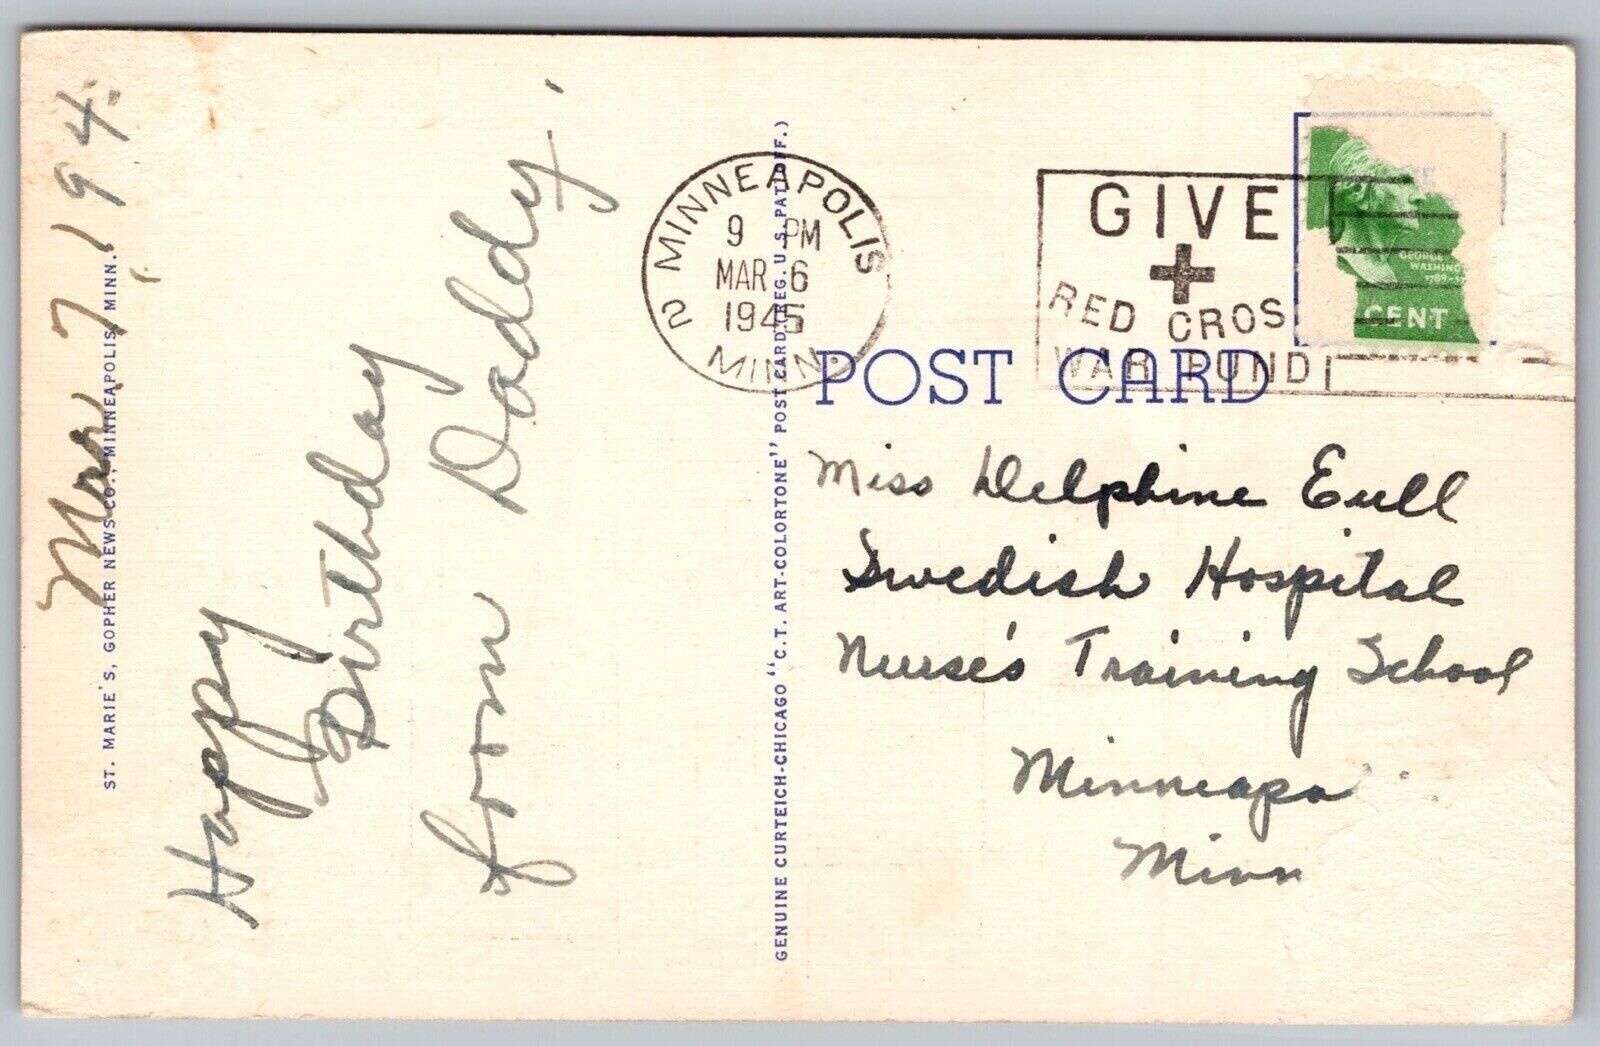 Mar 7, 194
Happy
Birthday
from Daddy,
ST. MARIE'S, GOPHER NEWS CO., MINNEAPOLIS, MINN.
GENUINE CURTEICH-CHICAGO "C.T. ART-COLORTONE" POST CARD (REG. U.S. PAT. OFF.)
MINNEAPOLIS
9 PM
MAR 6
1945
2 MINN.
GIVE
RED CROS
WAR FUND
GEORGE
WASHING
1789-
CENT
POST CARD
Miss Delphine Eull
Swedish Hospital
Nurse's Training School
Minneapo
Minn